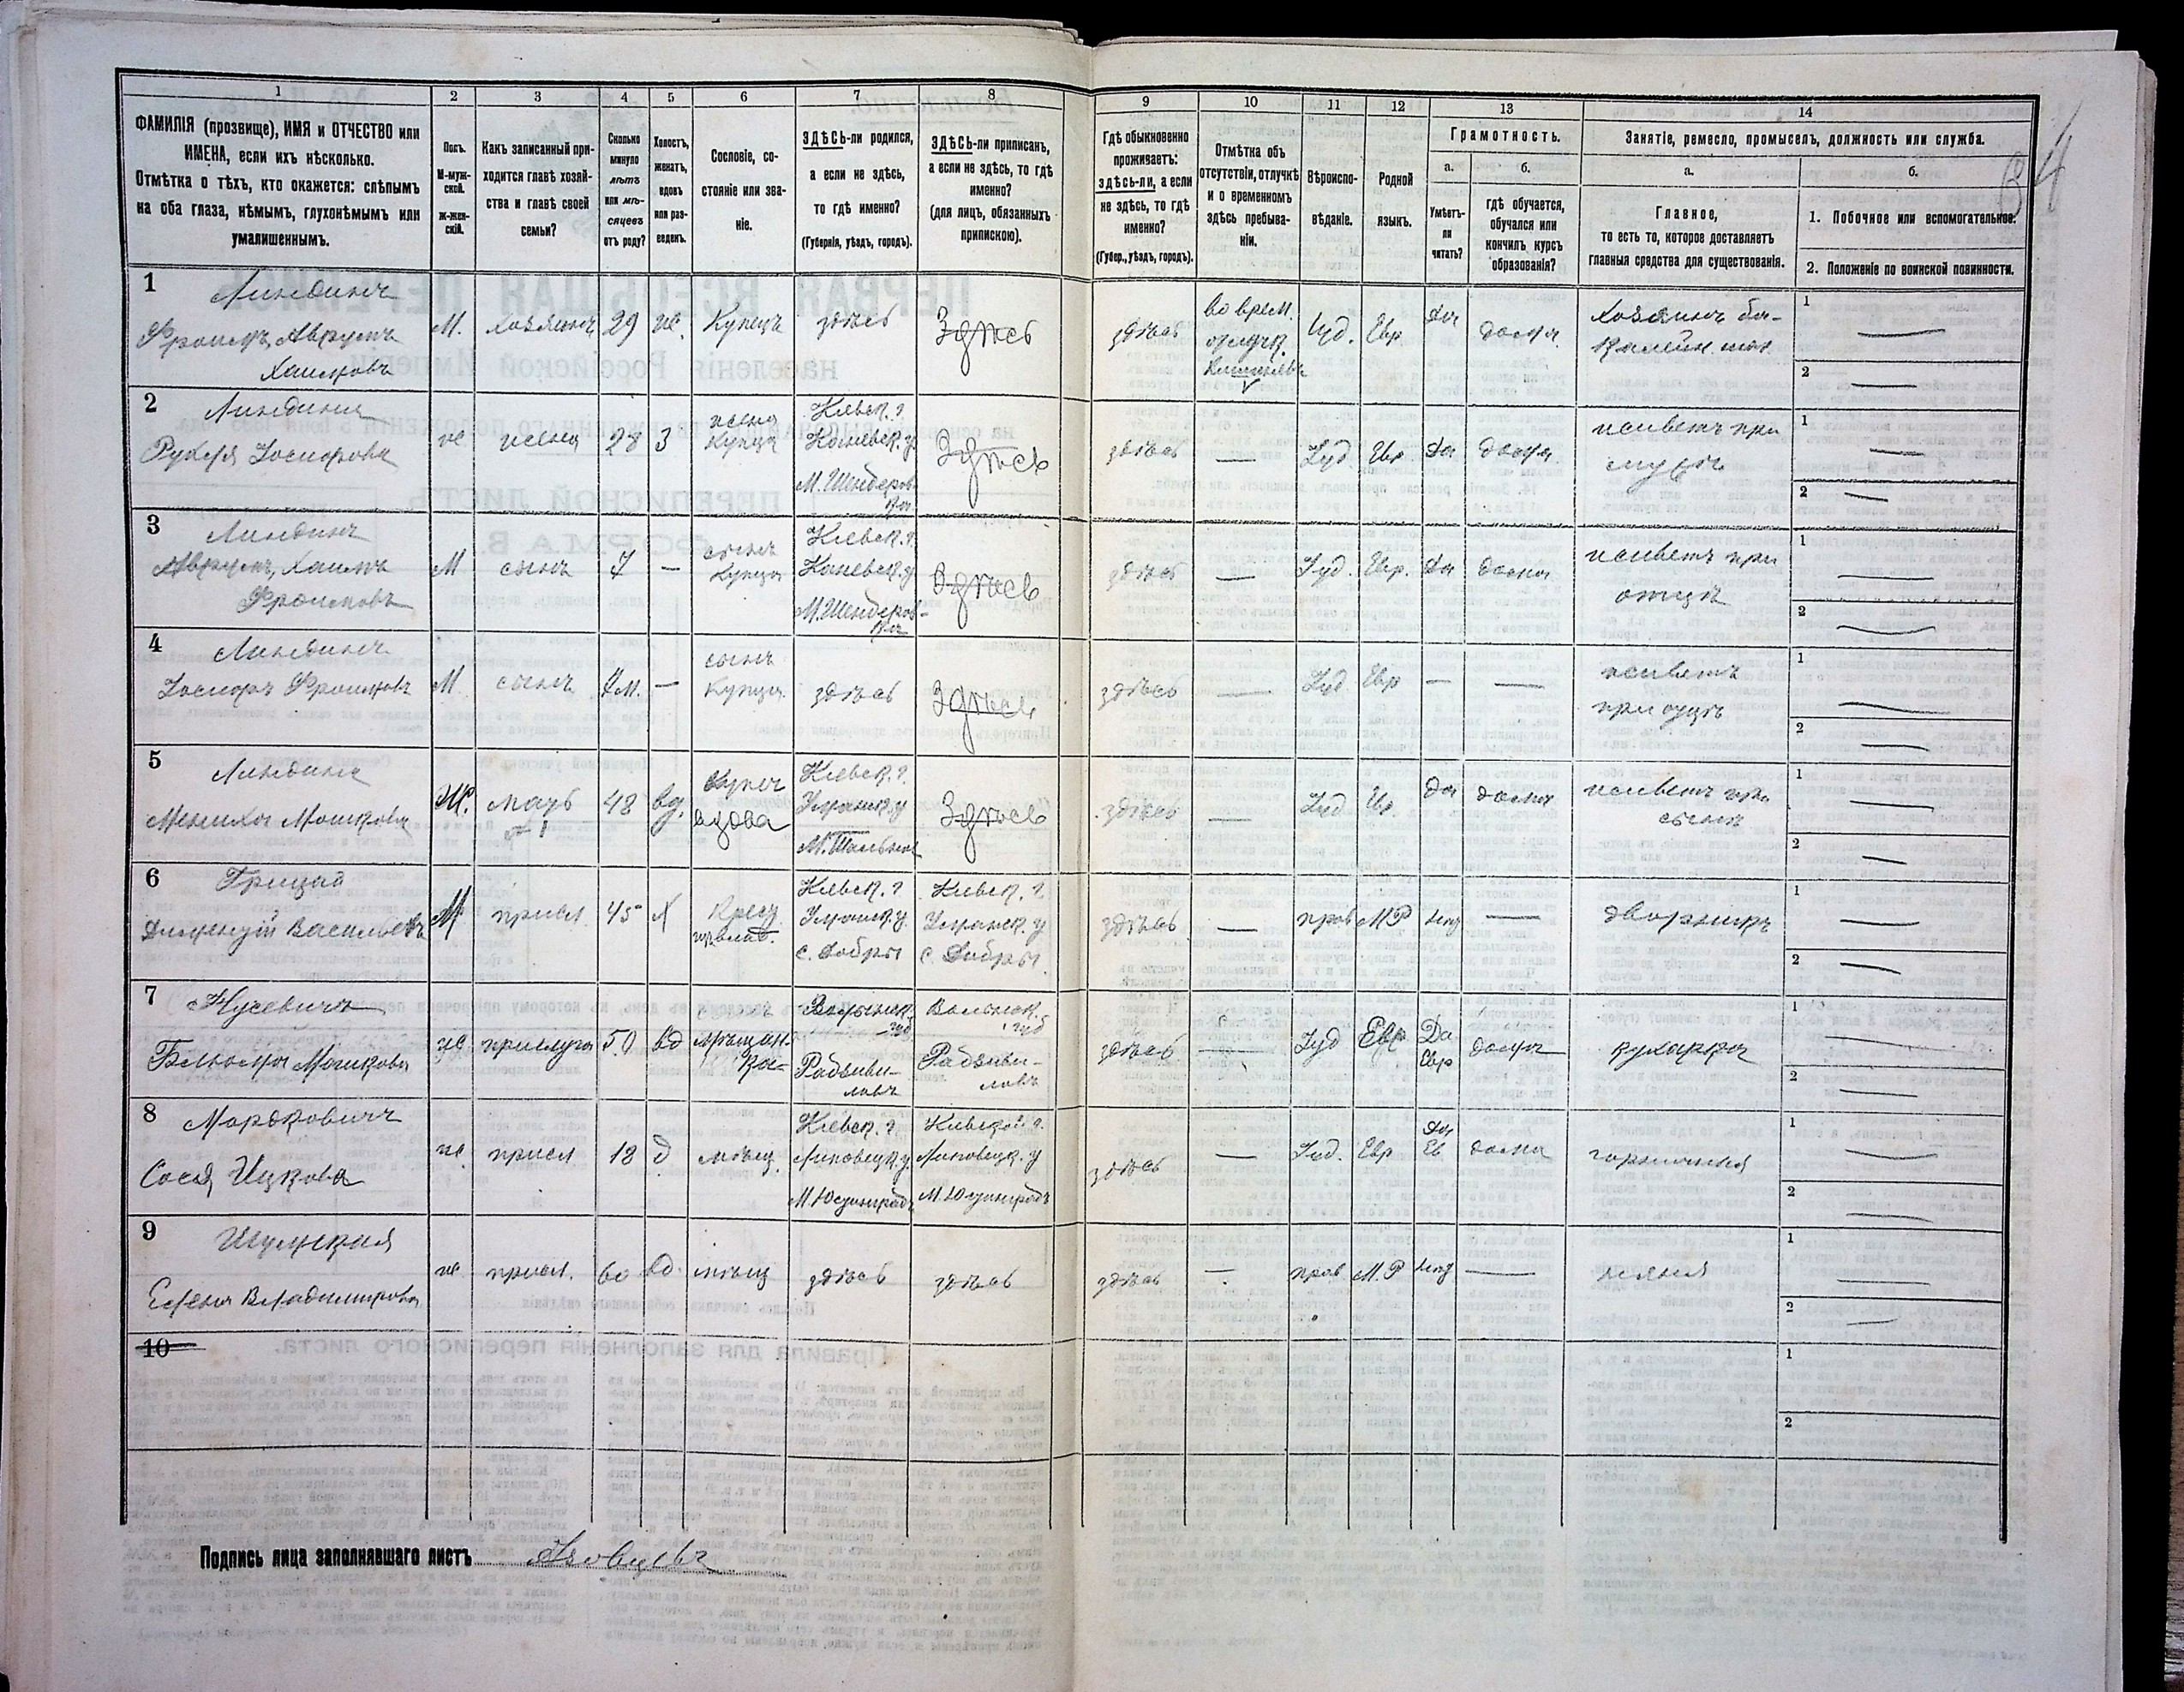 1 2 3 4 5 6 7 8 9 10 11 12 13 14
ФАМИЛІЯ (прозвище), ИМЯ и ОТЧЕСТВО или
ИМЕНА, если ихъ нѣсколько.
Отмѣтка о тѣхъ, кто окажется: слѣпымъ
на оба глаза, нѣмымъ, глухонѣмымъ или
умалишеннымъ.
Полъ.
М-муж-
ской.
ж-жен-
скій.
Какъ записанный при-
ходится главѣ хозяй-
ства и главѣ своей
семьи?
Сколько
минуло
лѣтъ
или мѣ-
сяцевъ
отъ роду?
Холостъ,
женатъ,
вдовъ
или раз-
веденъ.
Сословіе, со-
стояніе или зва-
ніе.
ЗДѢСЬ-ли родился,
а если не здѣсь,
то гдѣ именно?
(Губернія, уѣздъ, городъ).
ЗДѢСЬ-ли приписанъ,
а если не здѣсь, то гдѣ
именно?
(для лицъ, обязанныхъ
припискою).
Гдѣ обыкновенно
проживаетъ:
здѣсь-ли, а если
не здѣсь, то гдѣ
именно?
(Губер., уѣздъ, городъ).
Отмѣтка объ
отсутствіи, отлучкѣ
и о временномъ
здѣсь пребыва-
ніи.
Вѣроиспо-
вѣданіе.
Родной
языкъ.
Грамотность.
а.
Умѣетъ-
ли
читать?
б.
гдѣ обучается,
обучался или
кончилъ курсъ
образованія?
Занятіе, ремесло, промыселъ, должность или служба.
а.
Главное,
то есть то, которое доставляетъ
главныя средства для существованія.
б.
1. Побочное или вспомогательное.
2. Положеніе по воинской повинности.
1
Фроимъ, Аврумъ
Хаимовъ
М. хозяинъ 29 же. Купецъ здѣсь Здѣсь
здѣсь
во врем.
отлучк.
Іуд. Евр. Да дома
Хозяинъ ба-
калейн.
1
2
2
Рухля Іосифова
же жена 28 З
жена
купца
Кіевск. г.
Каневск. у.
М. Шендеров-
ка
Здѣсь
здѣсь — Іуд. Евр Да дома
живетъ при
мужѣ
1
2
3
Аврумъ, Хаимъ
Фроимовъ
М сынъ 7 —
сынъ
купца
Кіевск. г.
Каневск. у
М. Шендеров-
ка
Здѣсь
здѣсь — Іуд. Евр. Да дома
живетъ при
отцѣ
1
2
4
Іосифъ Фроимовъ
М сынъ 7 м. —
сынъ
купца
здѣсь Здѣсь
здѣсь — Іуд Евр — —
живетъ
при отцѣ
1
2
5
Мошкова
Ж. мать 48 вд.
вдова
Кіевск. г.
Уманск. у
М. Тальное
Здѣсь
здѣсь — Іуд Ев. да дома
живетъ при
сынѣ
1
2
6
Грицай
Дементій Васильевъ
М присл 45 Х
Крест
Кіевск. г
Уманск. у.
с. Добры
Кіевск. г.
Уманск. у
с. Добры
здѣсь — прав М Р нет —
дворникъ
1
2
7
Кусевичъ
Мошкова
же прислуга 50 вд
мѣщан-
ка
Волынск.
губ
Радзиви-
ловъ
Волынск.
губ
Радзиви-
ловъ
здѣсь — Іуд Евр
Да
Евр
дома
кухарка
1
2
8
Мордковичъ
Сося Ицкова
же присл 18 д мѣщ.
Кіевск. г.
Липовецк. у.
М. Юстинградъ
Кіевской г.
Липовецк. у
М. Юстинградъ
здѣсь — Іуд. Евр
Да
Ев
дома
горничная
1
2
9
Шумская
Евгенія Владимирова
же присл. 60 вд. мѣщ здѣсь здѣсь
здѣсь — прав М. Р нет —
няня
1
2
10
1
2
Подпись лица заполнявшаго листъ